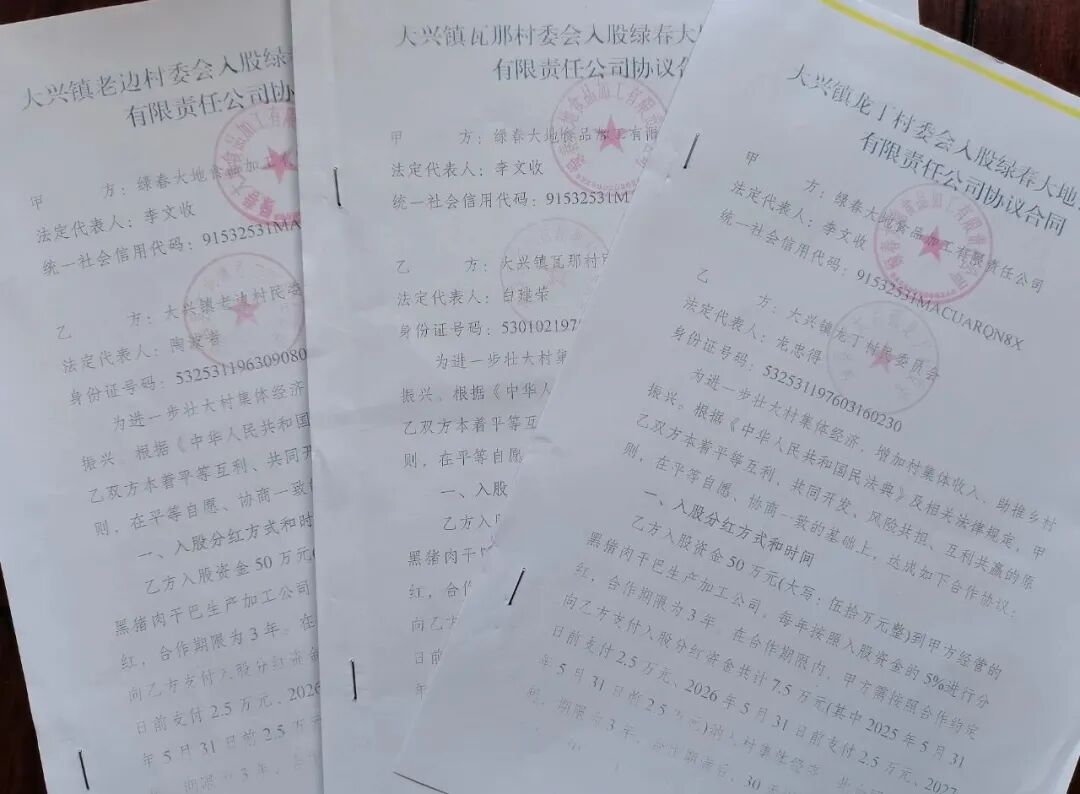 大兴镇老边村委会入股绿春
有限责任公司协
甲 方：绿春大地食品加工
法定代表人：李文收
统一社会信用代码：91532531MA
乙 方：大兴镇老边村民委
法定代表人：陶
身份证号码：532531196309080
为进一步壮大村集体经济
振兴。根据《中华人民共和国
乙双方本着平等互利、共同开
则，在平等自愿、协商一致
一、入股分红方式和时
乙方入股资金50万元
黑猪肉干巴生产加工公司
红，合作期限为3年。在
向乙方支付入股分红资金
日前支付2.5万元、2026
年5月31日前2.5万元
期限为3年，
大兴镇瓦那村委会入股绿春大
有限责任公司协议合
甲 方：绿春大地食品加工有限
法定代表人：李文收
统一社会信用代码：91532531M
乙 方：大兴镇瓦那村民
法定代表人：白建荣
身份证号码：530102197
为进一步壮大村集
振兴。根据《中华人
乙双方本着平等互
则，在平等自愿
一、入股
乙方入股
黑猪肉干
红，合作
向乙方
日前
年
大兴镇龙丁村委会入股绿春大地
有限责任公司协议合同
甲 方：绿春大地食品加工有限责任公司
法定代表人：李文收
统一社会信用代码：91532531MACUARQN8X
乙 方：大兴镇龙丁村民委员会
法定代表人：龙忠得
身份证号码：532531197603160230
为进一步壮大村集体经济，增加村集体收入，助推乡村
振兴。根据《中华人民共和国民法典》及相关法律规定，甲
乙双方本着平等互利、共同开发、风险共担、互利共赢的原
则，在平等自愿、协商一致的基础上，达成如下合作协议：
一、入股分红方式和时间
乙方入股资金50万元(大写：伍拾万元整)到甲方经营的
黑猪肉干巴生产加工公司，每年按照入股资金的5%进行分
红，合作期限为3年。在合作期限内，甲方需按照合作约定
向乙方支付入股分红资金共计7.5万元(其中2025年5月31
日前支付2.5万元、2026年5月31日前支付2.5万元、2027
年5月31日前2.5万元)的入村集体经济
期限为3年，合作期满后，30天